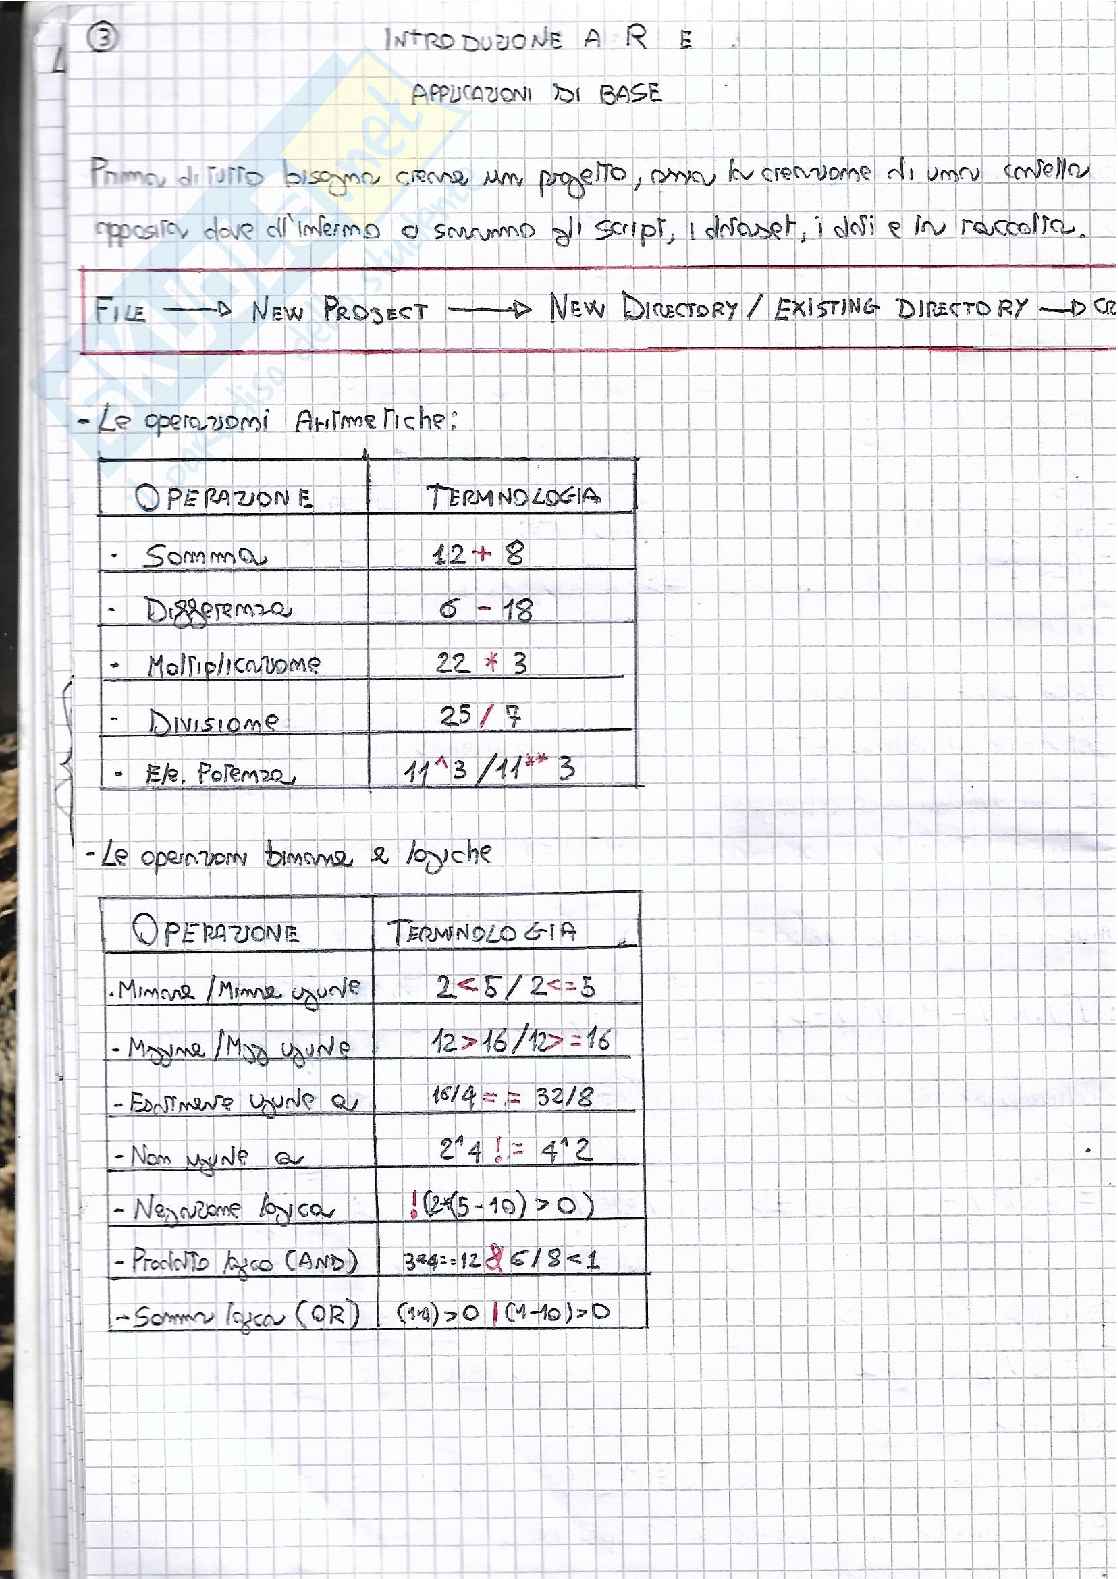 3
INTRODUZIONE A R E
APPLICAZIONI DI BASE
Prima di tutto bisogna creare un progetto, ossia la creazione di una cartella
apposita dove all'interno ci saranno gli script, i dataset, i dati e la raccolta.
FILE → NEW PROJECT → NEW DIRECTORY / EXISTING DIRECTORY → CR
- Le operazioni Aritmetiche:
OPERAZIONE TERMNOLOGIA
· Somma 12 + 8
- Differenza 6 - 18
- Moltiplicazione 22 * 3
- Divisione 25 / 7
- Ele. Potenza 11^3 / 11** 3
- Le operazioni binarie e logiche
OPERAZIONE TERMINOLOGIA
· Minore / Minore uguale 2<5 / 2<=5
- Maggiore / Magg uguale 12>16 / 12>=16
- Esattamente uguale a 16/4 == 32/8
- Non uguale a 2^4 != 4^2
- Negazione logica !(2*(5-10) > 0)
- Prodotto logico (AND) 3*4==12 & 6/8<1
- Somma logica (OR) >0 | (1-10)>0